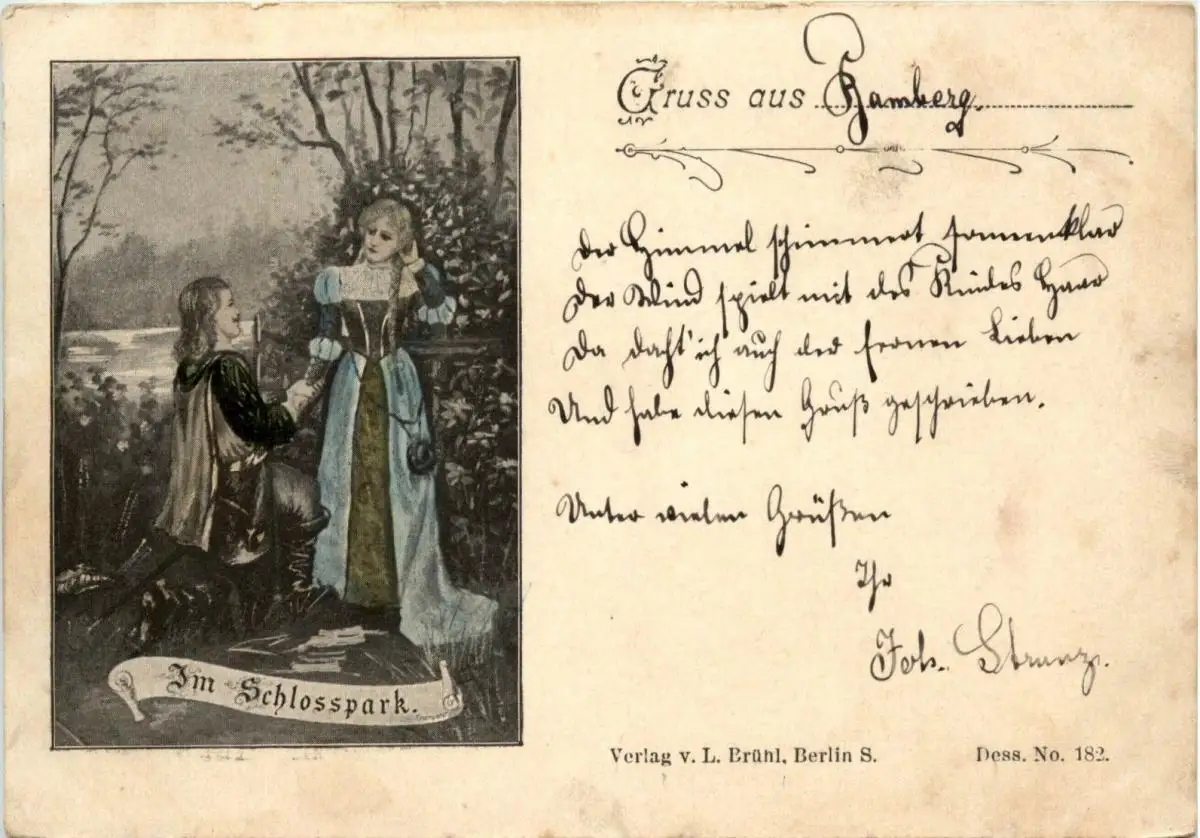 Gruss aus Bamberg.
Der Himmel schimmert sonnenklar
Der Wind spielt mit des Kindes Haar
Da dacht' ich auch der fernen Lieben
Und habe diesen Gruß geschrieben.
Unter vielen Grüßen
Ihr
Joh.
Im Schlosspark.
Verlag v. L. Brühl, Berlin S.
Dess. No. 182.